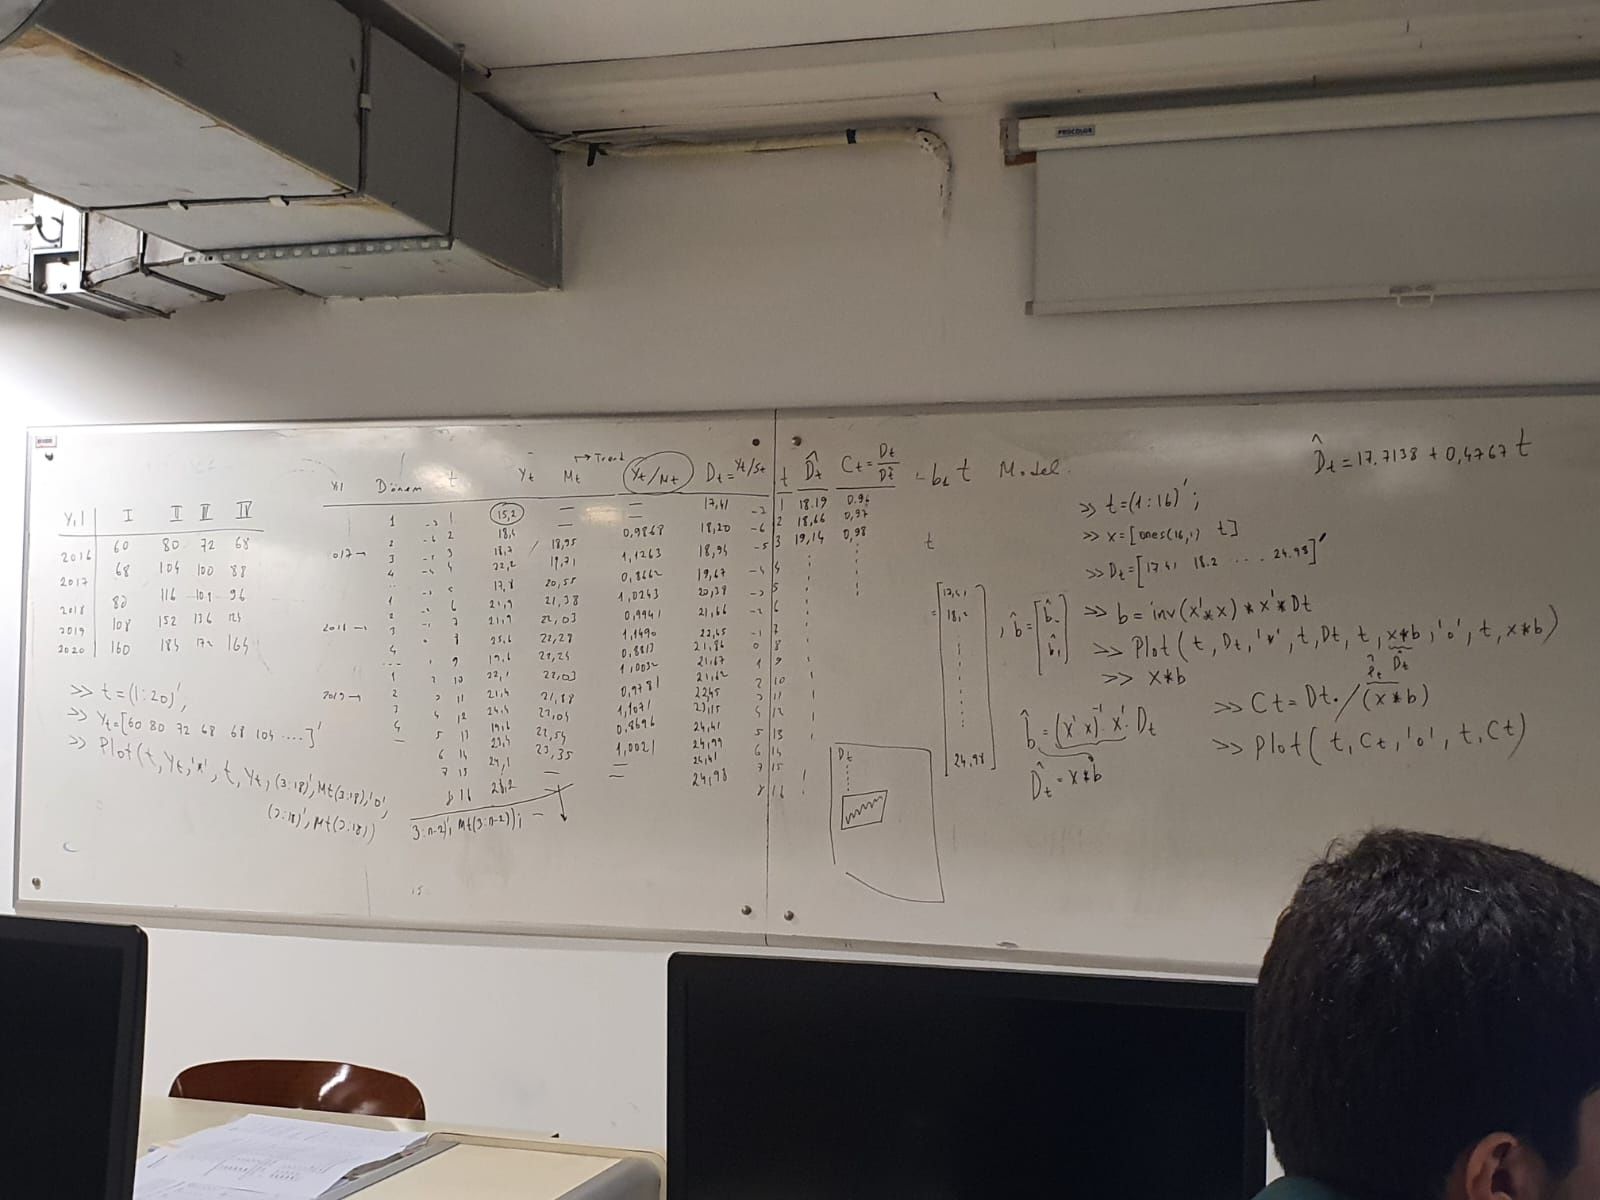 PROCOLOR
Yıl I II III IV
2016 60 80 72 68
2017 68 104 100 88
2018 80 116 108 96
2019 108 152 136 124
2020 160 184 172 164
>> t=(1:20)';
>> Yt=[60 80 72 68 68 104 ....]'
>> Plot(t,Yt,'*',t,Yt,(3:18)',Mt(3:18),'o',
(3:18)',Mt(3:18))
Yıl Dönem t Yt Mt → Trend Yt/Mt Dt=Yt/St
1 1 15,2 — — 17,41
2 2 18,4 — — 18,20
2017→ 3 3 18,7 18,95 0,9868 18,94
4 4 22,2 19,71 1,1263 19,67
1 5 17,8 20,55 0,8662 20,38
2 6 21,9 21,38 1,0243 21,66
2018→ 3 7 21,9 22,03 0,9941 22,65
4 8 25,6 22,28 1,1490 21,86
1 9 19,6 22,24 0,8813 21,67
2 10 22,1 22,03 1,0032 21,62
2019→ 3 11 21,4 21,88 0,9781 22,45
4 12 24,4 22,04 1,1071 23,15
13 19,6 22,54 0,8696 24,41
14 23,4 23,35 1,0021 24,99
15 24,1 — — 24,41
16 28,2 — — 24,98
3:n-2)', Mt(3:n-2));
t D̂t Ct=Dt/D̂t
1 18.19 0.96
2 18,66 0,97
3 19,14 0,98
4
5
6
7
8
9
10
11
12
13
14
15
16
b₁ t Model.
t
18,2
24,98
, b̂=
Dt
b̂=(x'x)⁻¹x'.Dt
D̂t=x*b̂
D̂t=17.7138+0,4767t
>> t=(1:16)';
>> x=[ones(16,1) t]
>> Dt=[17.41 18.2 ... 24.98]'
>> b=inv(x'*x)*x'*Dt
>> Plot(t,Dt,'*',t,Dt,t,x*b,'o',t,x*b)
D̂t
>> x*b
>> Ct=Dt./(x*b)
>> plot(t,Ct,'o',t,Ct)